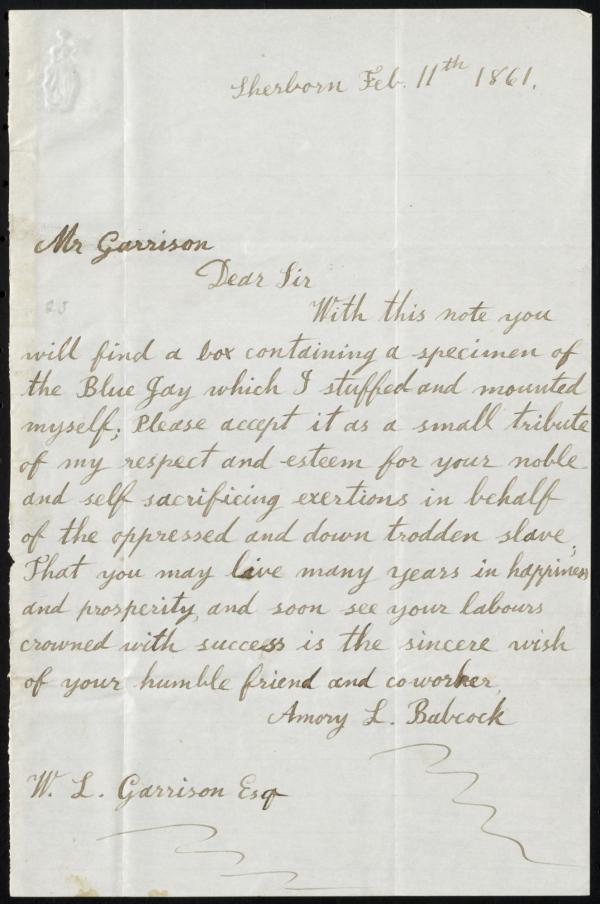 Sherborn Feb. 11th 1861.
Mr Garrison
Dear Sir
With this note you
will find a box containing a specimen of
the Blue Jay which I stuffed and mounted
myself; Please accept it as a small tribute
of my respect and esteem for your noble
and self sacrificing exertions in behalf
of the oppressed and down trodden slave;
That you may live many years in happiness
and prosperity, and soon see your labours
crowned with success is the sincere wish
of your humble friend and coworker,
Amory L. Babcock
W. L. Garrison Esq